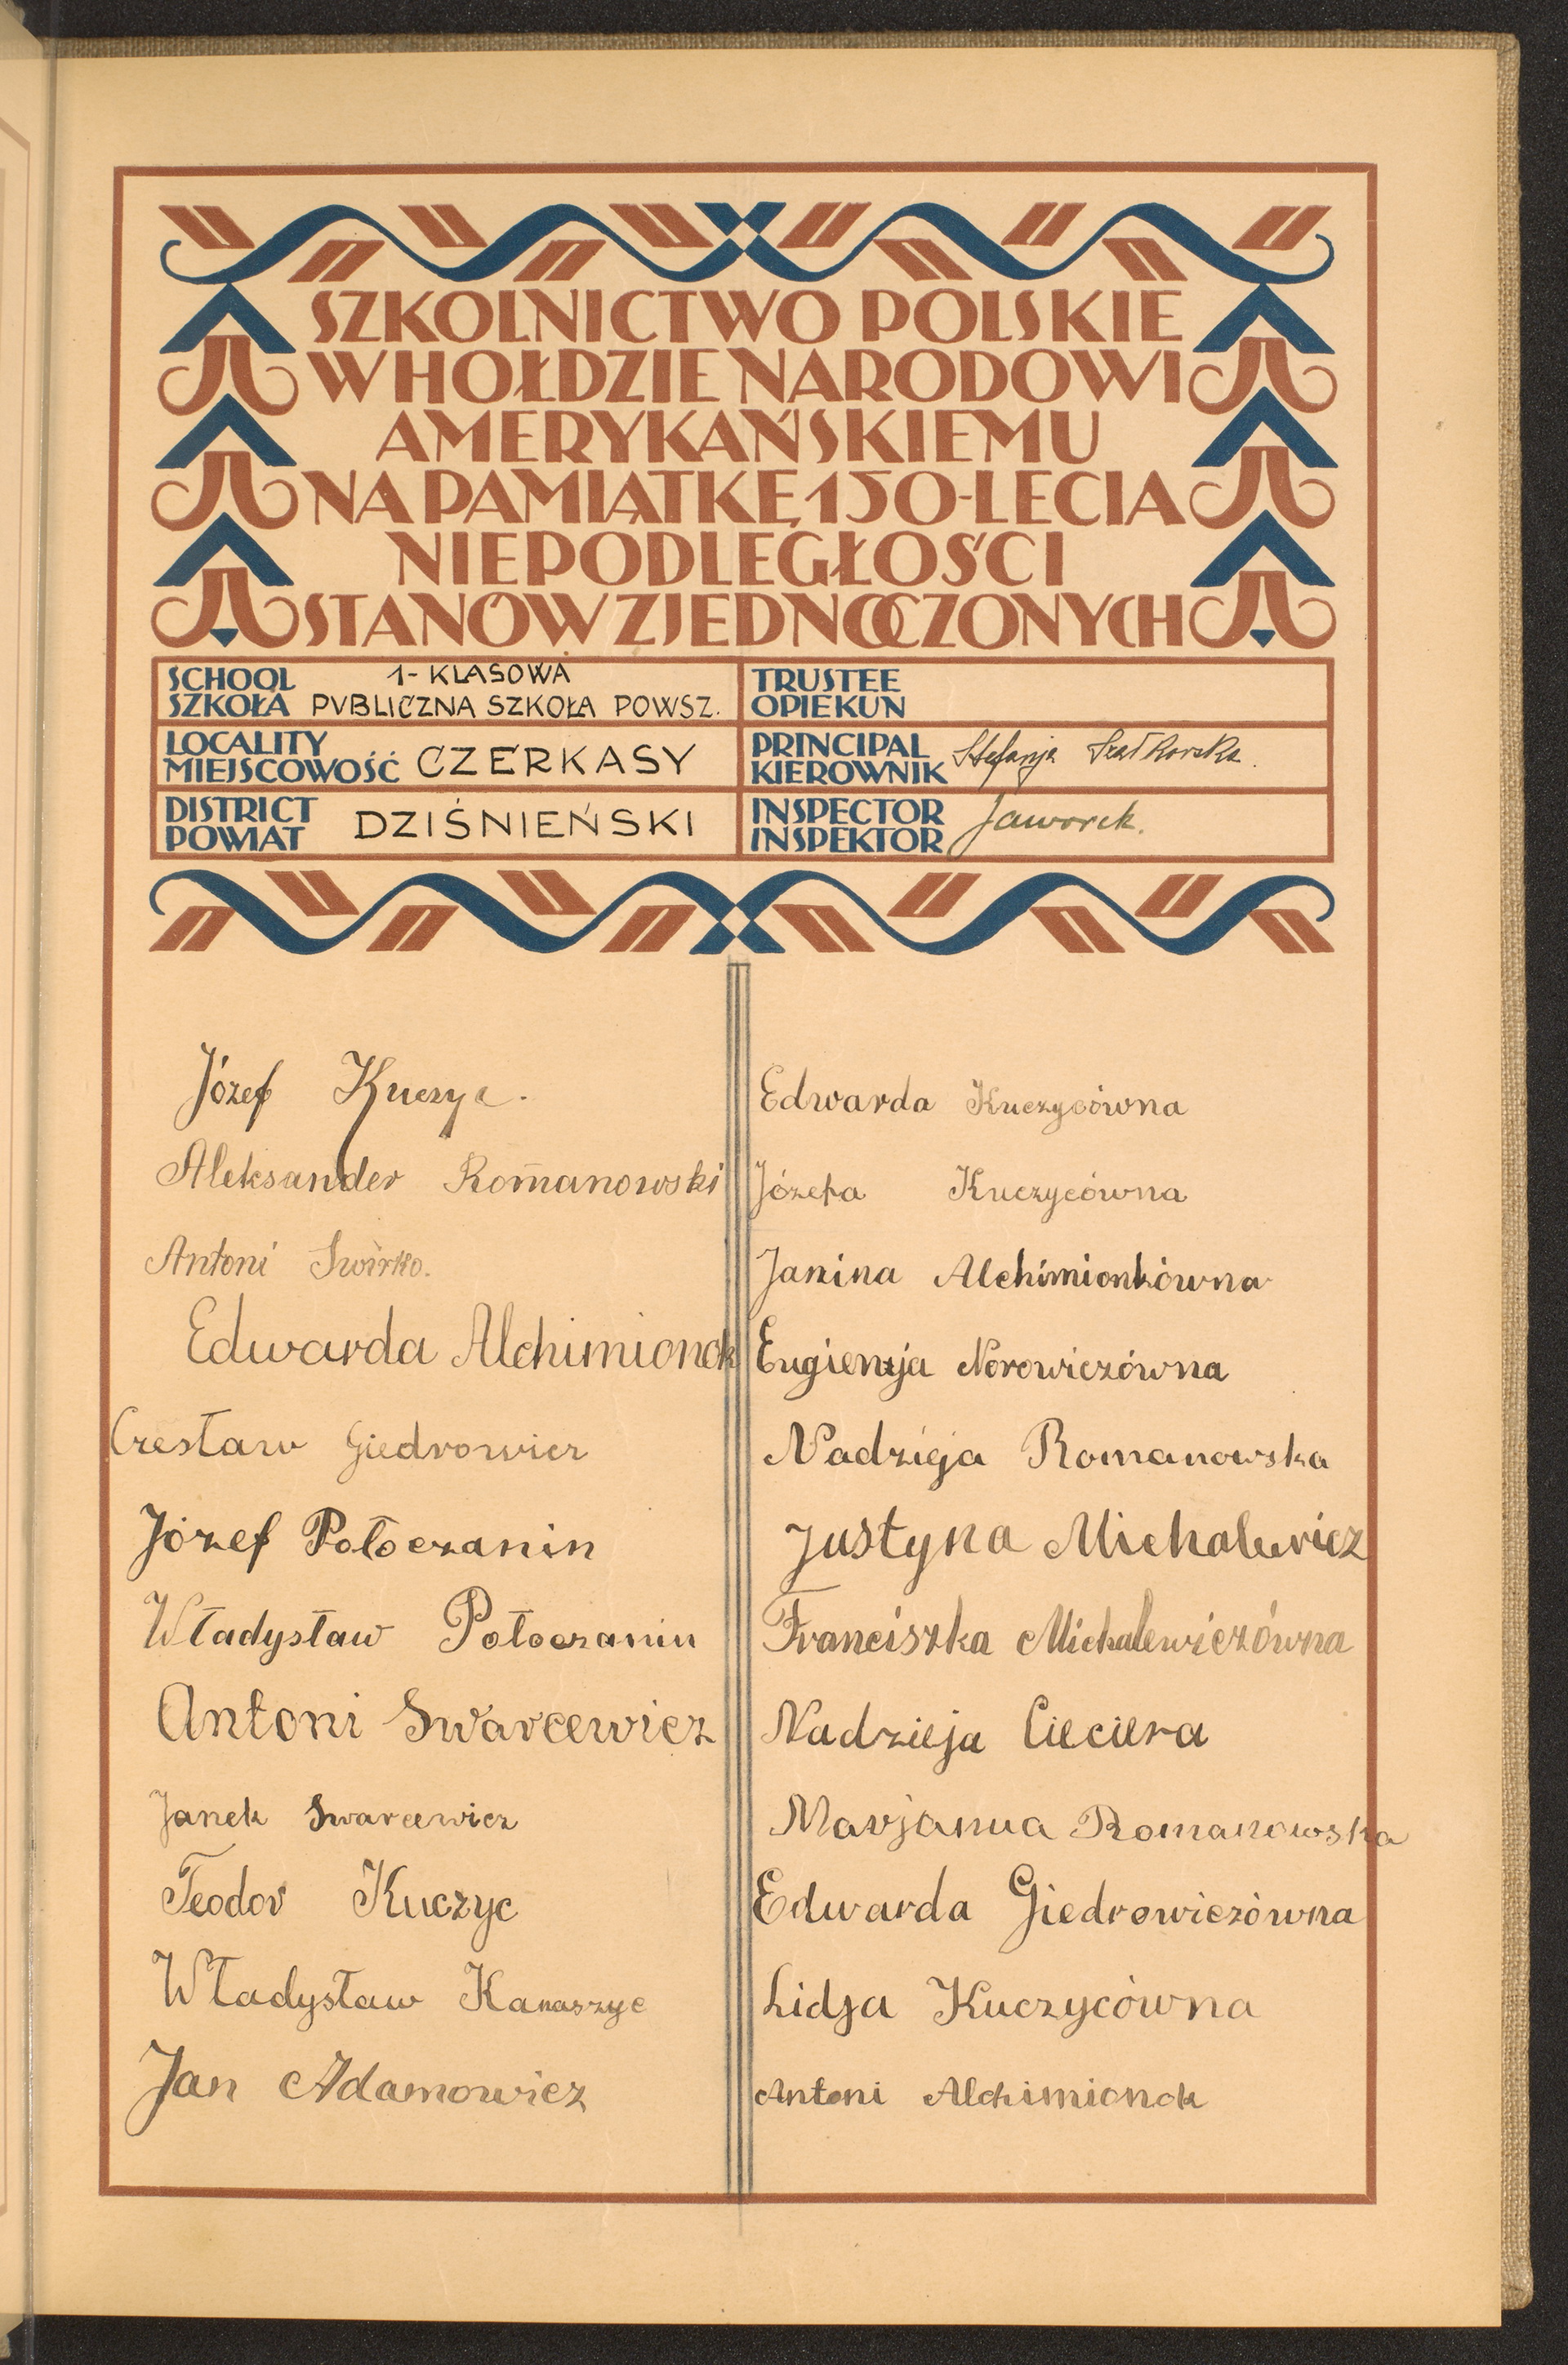 SZKOLNICTWO POLSKIE
W HOŁDZIE NARODOWI
AMERYKAŃSKIEMU
NA PAMIĄTKĘ 150-LECIA
NIEPODLEGŁOŚCI
STANÓW ZJEDNOCZONYCH
SCHOOL
SZKOŁA
1-KLASOWA
PVBLICZNA SZKOŁA POWSZ.
TRUSTEE
OPIEKUN
LOCALITY
MIEJSCOWOŚĆ
CZERKASY
PRINCIPAL
KIEROWNIK
Stefanja Szatkowska.
DISTRICT
POWIAT
DZIŚNIEŃSKI
INSPECTOR
INSPEKTOR
Jaworek.
Józef Kuczyc.
Aleksander Romanowski
Antoni Swirko.
Edwarda Alchimionok
Czesław Giedrowicz
Józef Połoczanin
Władysław Połoczanin
Antoni Swarcewicz
Janek Swarcewicz
Teodor Kuczyc
Władysław Kanaszyc
Jan Adamowicz
Edwarda Kuczycówna
Józefa Kuczycówna
Janina Alchimionkówna
Eugienja Norowiczówna
Nadzieja Romanowska
Justyna Michalewicz
Franciszka Michalewiczówna
Nadzieja Cieciera
Marjanna Romanowska
Edwarda Giedrowiczówna
Lidja Kuczycówna
Antoni Alchimionok